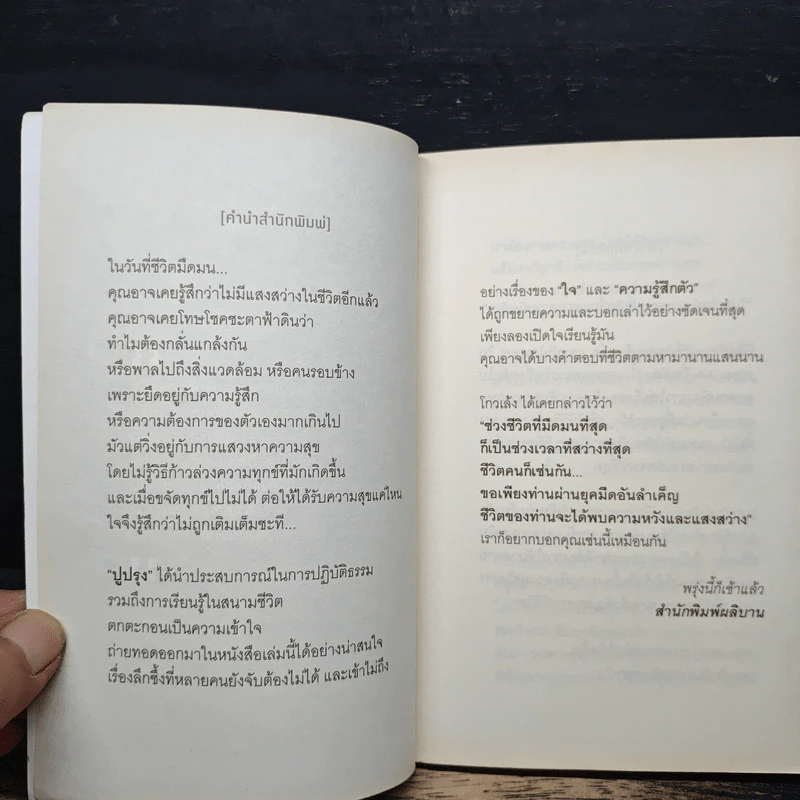 [คำนำสำนักพิมพ์]
ในวันที่ชีวิตมืดมน...
คุณอาจเคยรู้สึกว่าไม่มีแสงสว่างในชีวิตอีกแล้ว
คุณอาจเคยโทษโชคชะตาฟ้าดินว่า
ทำไมต้องกลั่นแกล้งกัน
หรือพาลไปถึงสิ่งแวดล้อม หรือคนรอบข้าง
เพราะยึดอยู่กับความรู้สึก
หรือความต้องการของตัวเองมากเกินไป
มัวแต่วิ่งอยู่กับการแสวงหาความสุข
โดยไม่รู้วิธีก้าวล่วงความทุกข์ที่มักเกิดขึ้น
และเมื่อขจัดทุกข์ไปไม่ได้ ต่อให้ได้รับความสุขแค่ไหน
ใจจึงรู้สึกว่าไม่ถูกเติมเต็มซะที...
“ปูปรุง” ได้นำประสบการณ์ในการปฏิบัติธรรม
รวมถึงการเรียนรู้ในสนามชีวิต
ตกตะกอนเป็นความเข้าใจ
ถ่ายทอดออกมาในหนังสือเล่มนี้ได้อย่างน่าสนใจ
เรื่องลึกซึ้งที่หลายคนยังจับต้องไม่ได้ และเข้าไม่ถึง
อย่างเรื่องของ “ใจ” และ “ความรู้สึกตัว”
ได้ถูกขยายความและบอกเล่าไว้อย่างชัดเจนที่สุด
เพียงลองเปิดใจเรียนรู้มัน
คุณอาจได้บางคำตอบที่ชีวิตตามหามานานแสนนาน
โกวเล้ง ได้เคยกล่าวไว้ว่า
“ช่วงชีวิตที่มืดมนที่สุด
ก็เป็นช่วงเวลาที่สว่างที่สุด
ชีวิตคนก็เช่นกัน...
ขอเพียงท่านผ่านยุคมืดอันลำเค็ญ
ชีวิตของท่านจะได้พบความหวังและแสงสว่าง”
เราก็อยากบอกคุณเช่นนี้เหมือนกัน
พรุ่งนี้ก็เช้าแล้ว
สำนักพิมพ์ผลิบาน